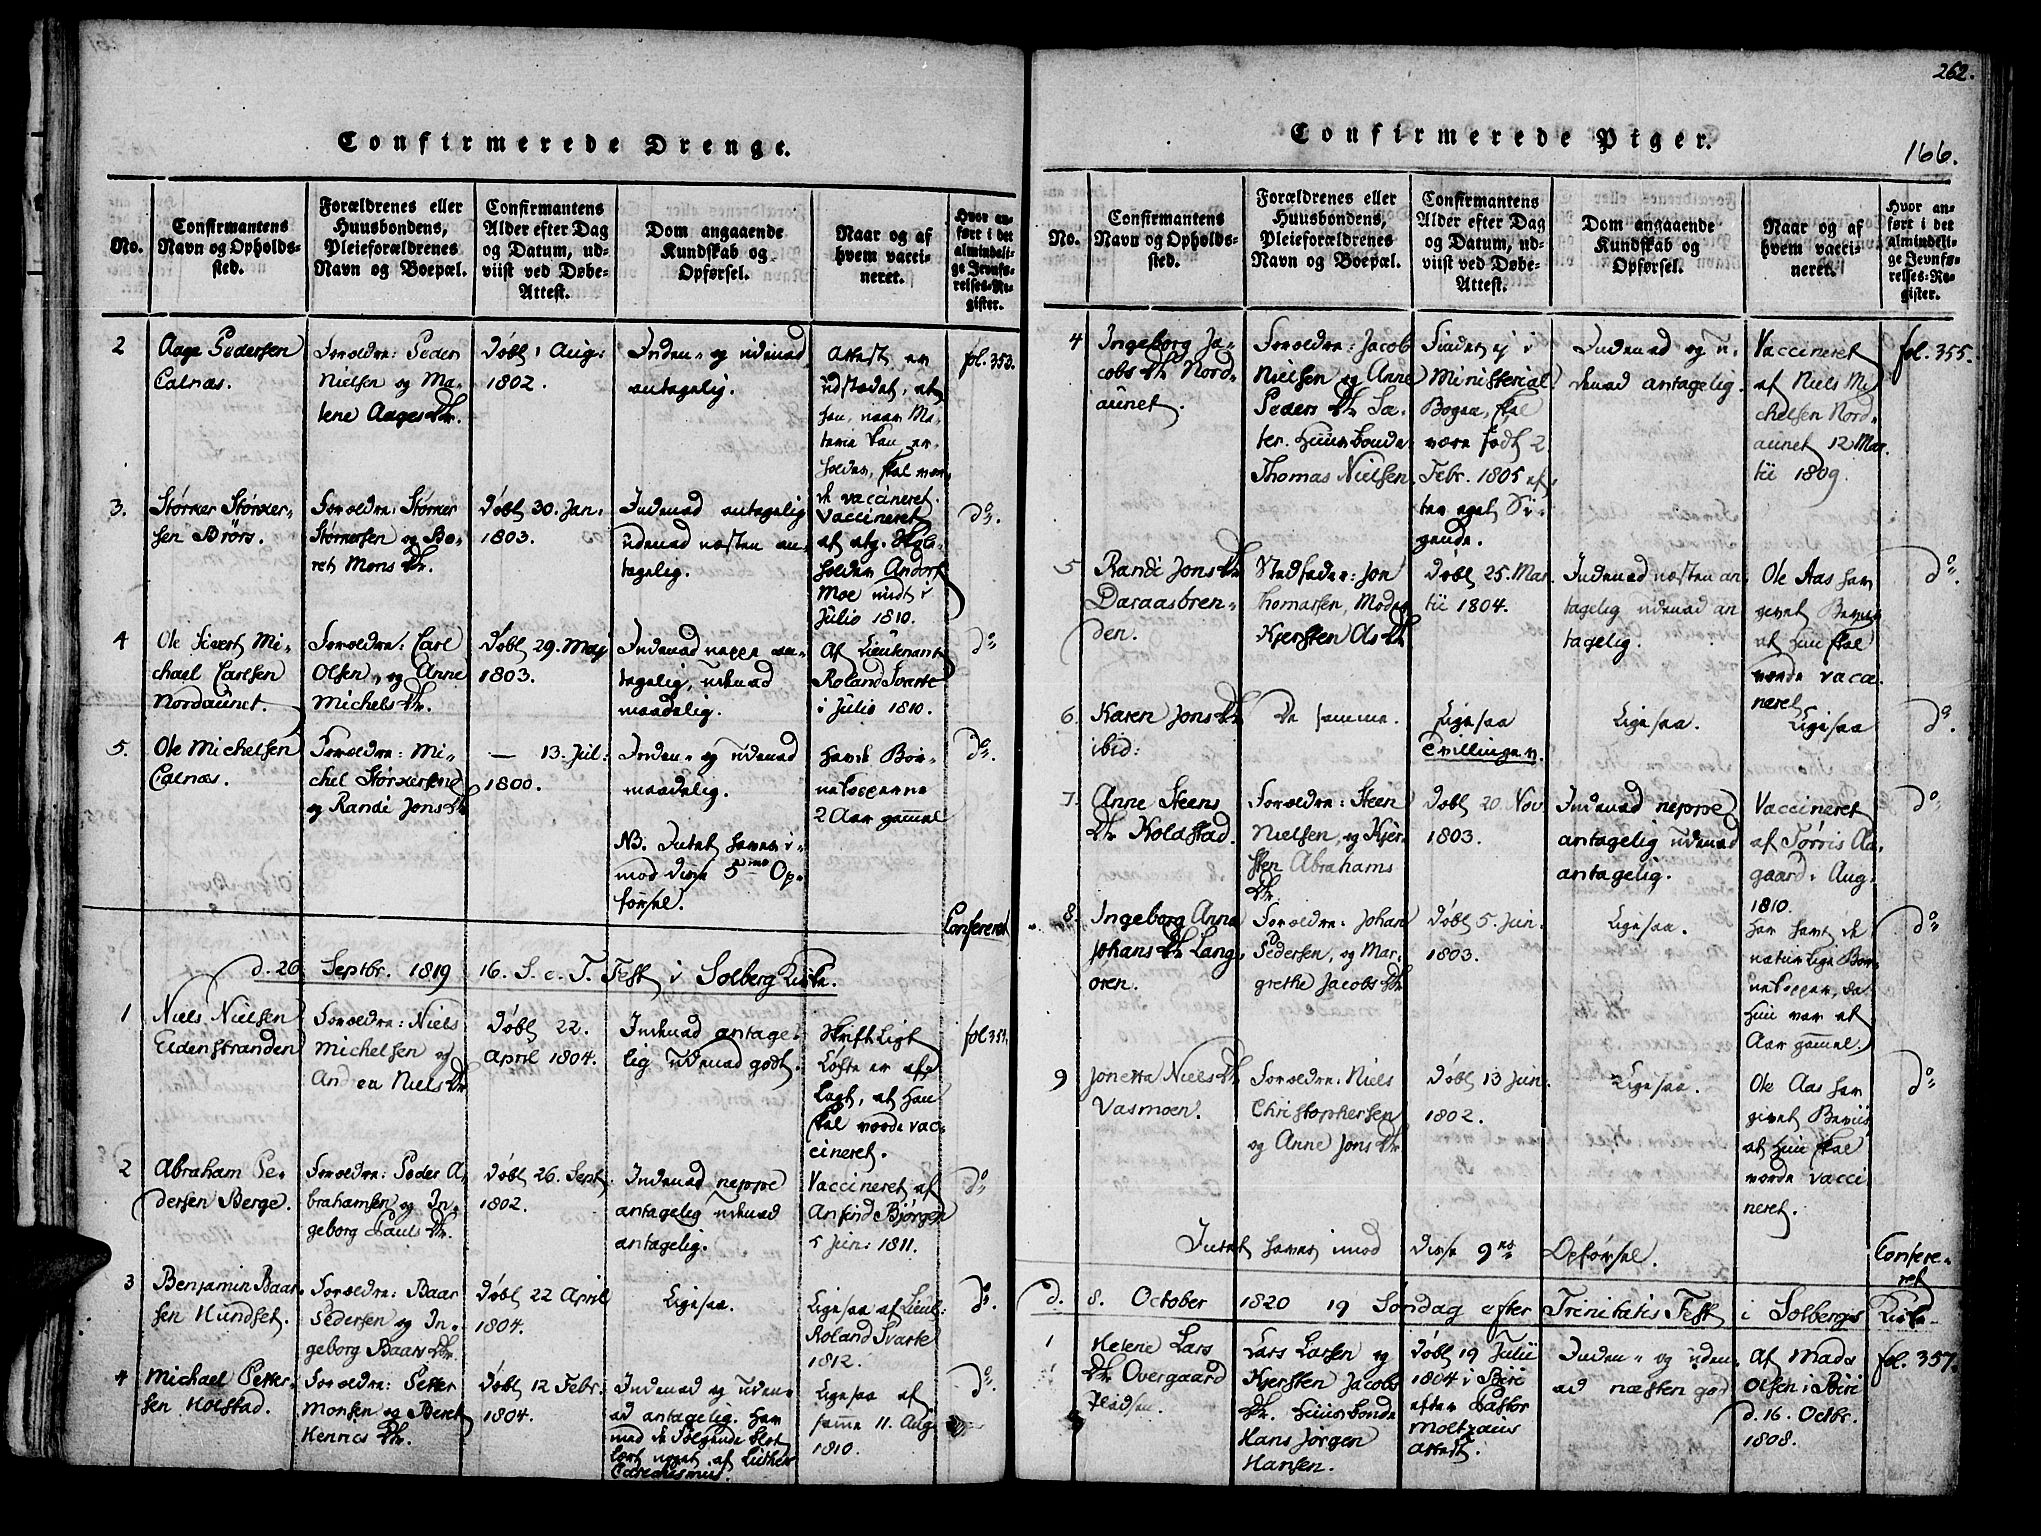 Confirmerede Drenge.
No.
Confirmantens
Navn og Opholds-
sted.
Forældrenes eller
Huusbondens,
Pleieforældrenes
Navn og Boepæl.
Confirmantens
Alder efter Dag
og Datum, ud-
viist ved Døbe-
Attest.
Dom angaaende
Kundskab og
Opførsel.
Naar og af
hvem vacci-
neret.
Hvor an-
ført i det
almindeli-
ge Jevnfø-
relses-Re-
gister.
2
Aage Pedersen
Calnæs.
Foreldre: Peder
Nielsen og Ma-
lene Aages Dr.
Døbt 1 Aug:
1802.
Inden- og udenad
antagelig.
Attest er
udstædet, at
han, naar Ma-
terie kan er-
holdes, skal vor-
de vaccineret.
fol. 353.
3.
Størker Størker-
sen Brørs.
Foreldre: Størker
Størkersen og Be-
ret Mons Dr.
Døbt 30. Jan.
1803.
Indenad antagelig
udenad næsten an-
tagelig.
Vaccineret
af
holder Andorf
Moe midt i
Julio 1810.
do.
4
Ole Sivert Mi-
chael Carlsen
Nordaunet.
Foreldre: Carl
Olsen, og Anne
Michels Dr.
Døbt 29. Maj
1803.
Indenad neppe an-
tagelig, udenad
maadelig.
Af Lieutnant
Roland Svarte
i Julio 1810.
do
5.
Ole Michelsen
Calnæs.
Foreldre: Mi-
chel Størkersen
og Randi Jons Dr
— 13. Jul:
1800.
Inden- og udenad
maadelig.
NB. Intet haves i-
mod disse 5 me Op-
førsel.
Havt Bør-
nekopperne
2 Aar gammel
do.
Confereret
d. 26 Septbr. 1819 16. S. e. T. Fest i Solberg Kirke.
1
Niels Nielsen
Eidenstranden
Foreldre: Niels
Michelsen og
Andrea Niels Dr
Døbt 22.
April 1804.
Indenad antage-
lig udenad godt.
Skriftligt
Løfte er af-
lagt, at han
skal vorde vac-
cineret.
fol 354.
2
Abraham Pe-
dersen Berge.
Foreldre: Peder A-
brahamsen og In-
geborg Pauls Dr.
Døbt 26. Sept.
1802.
Indenad neppe
antagelig udenad
antagelig.
Vaccineret af
Anfind Bjørgen
5 Jun: 1811.
do
3
Benjamin Baar-
sen Hundset.
Foreldre: Baar
Pedersen og In-
geborg Baars Dr.
Døbt 22 April
1804.
Ligesaa.
Ligesaa af Lieut:
Roland Svarte
1812.
do.
4
Michael Petter-
sen Holstad.
Foreldre: Petter
Monsen og Beret
Henrics Dr.
Døbt 12 Febr.
1804.
Indenad og uden-
ad antagelig. Har
med de Følgende
lært noget af Luthers
Catechismus.
Ligesaa af
samme 11. Aug
1810.
do.
262.
166.
Confirmerede Piger.
No.
Confirmantens
Navn og Opholds-
sted.
Forældrenes eller
Huusbondens,
Pleieforældrenes
Navn og Boepæl.
Confirmantens
Alder efter Dag
og Datum, ud-
viist ved Døbe-
Attest.
Dom angaaende
Kundskab og
Opførsel.
Naar og af
hvem vacci-
neret.
Hvor an-
ført i det
almindeli-
ge Jevnfø-
relses-Re-
gister.
4
Ingeborg Ja-
cobs Dr Nord-
aunet.
Foreldre: Jacob
Nielsen og Anne
Peders Dr Sæ-
ter. Huusbonde
Thomas Nielsen
Findes ej i
Ministerial
Bogen, skal
være født 2
Febr. 1805 ef-
ter eget Si-
gende.
Indenad og u-
denad antagelig.
Vaccineret
af Niels Mi-
chelsen Nord-
aunet 12 Mar-
tii 1809.
fol. 355.
5
Randi Jons Dr
Daraasbren-
den.
Stedfader: Jon
Thomassen, Moder
Kjersten Ols Dr
Døbt 25. Mar-
tii 1804.
Indenad næsten an-
tagelig udenad an-
tagelig.
Ole Aas har
givet Beviis
at hun skal
vorde vacci-
neret
do.
6.
Karen Jons Dr
ibid:
De samme.
Ligesaa
Tvillinger.
Ligesaa.
Ligesaa
do.
7.
Anne Steens
Dr Koldstad.
Foreldre: Steen
Nielsen, og Kjer-
sten Abrahams
Dr.
Døbt 20. Nov.
1803.
Indenad neppe
antagelig udenad
antagelig.
Vaccineret
af Tørris Aa-
gaard. Aug.
1810.
do
8.
Ingeborg Anna
Johans Dr Lang-
øren.
Foreldre: Johan
Pedersen, og Mar-
grethe Jacobs Dr
Døbt 5. Jun.
1803.
Ligesaa.
Har havt de
naturlige Bør-
nekopper, da
hun var et
Aar gammel.
do
9
Jonetta Niels Dr
Vasmoen.
Foreldre: Niels
Christophersen
og Anne Jons Dr
Døbt 13 Jun.
1802.
Ligesaa.
Ole Aas har
givet Beviis
at hun skal
vorde vacci-
neret.
do
Intet haves imod disse 9 es Opførsel.
Confere-
ret
d. 8. October 1820 19 Søndag efter Trinitatis Fest i Solbergs Kirke.
1
Helene Lars
Dr Overgaard
Pladsen.
Lars Larsen og
Kjersten Jacobs
Dr. Huusbonde
Hans Jørgen
Hansen.
Døbt 19 Julii
1804 i Biri
efter Pastor
Moltzaus
Attest.
Inden- og uden-
ad næsten god
Af Mads
Olsen i Biri
d. 16. Octbr.
1808.
fol. 357.